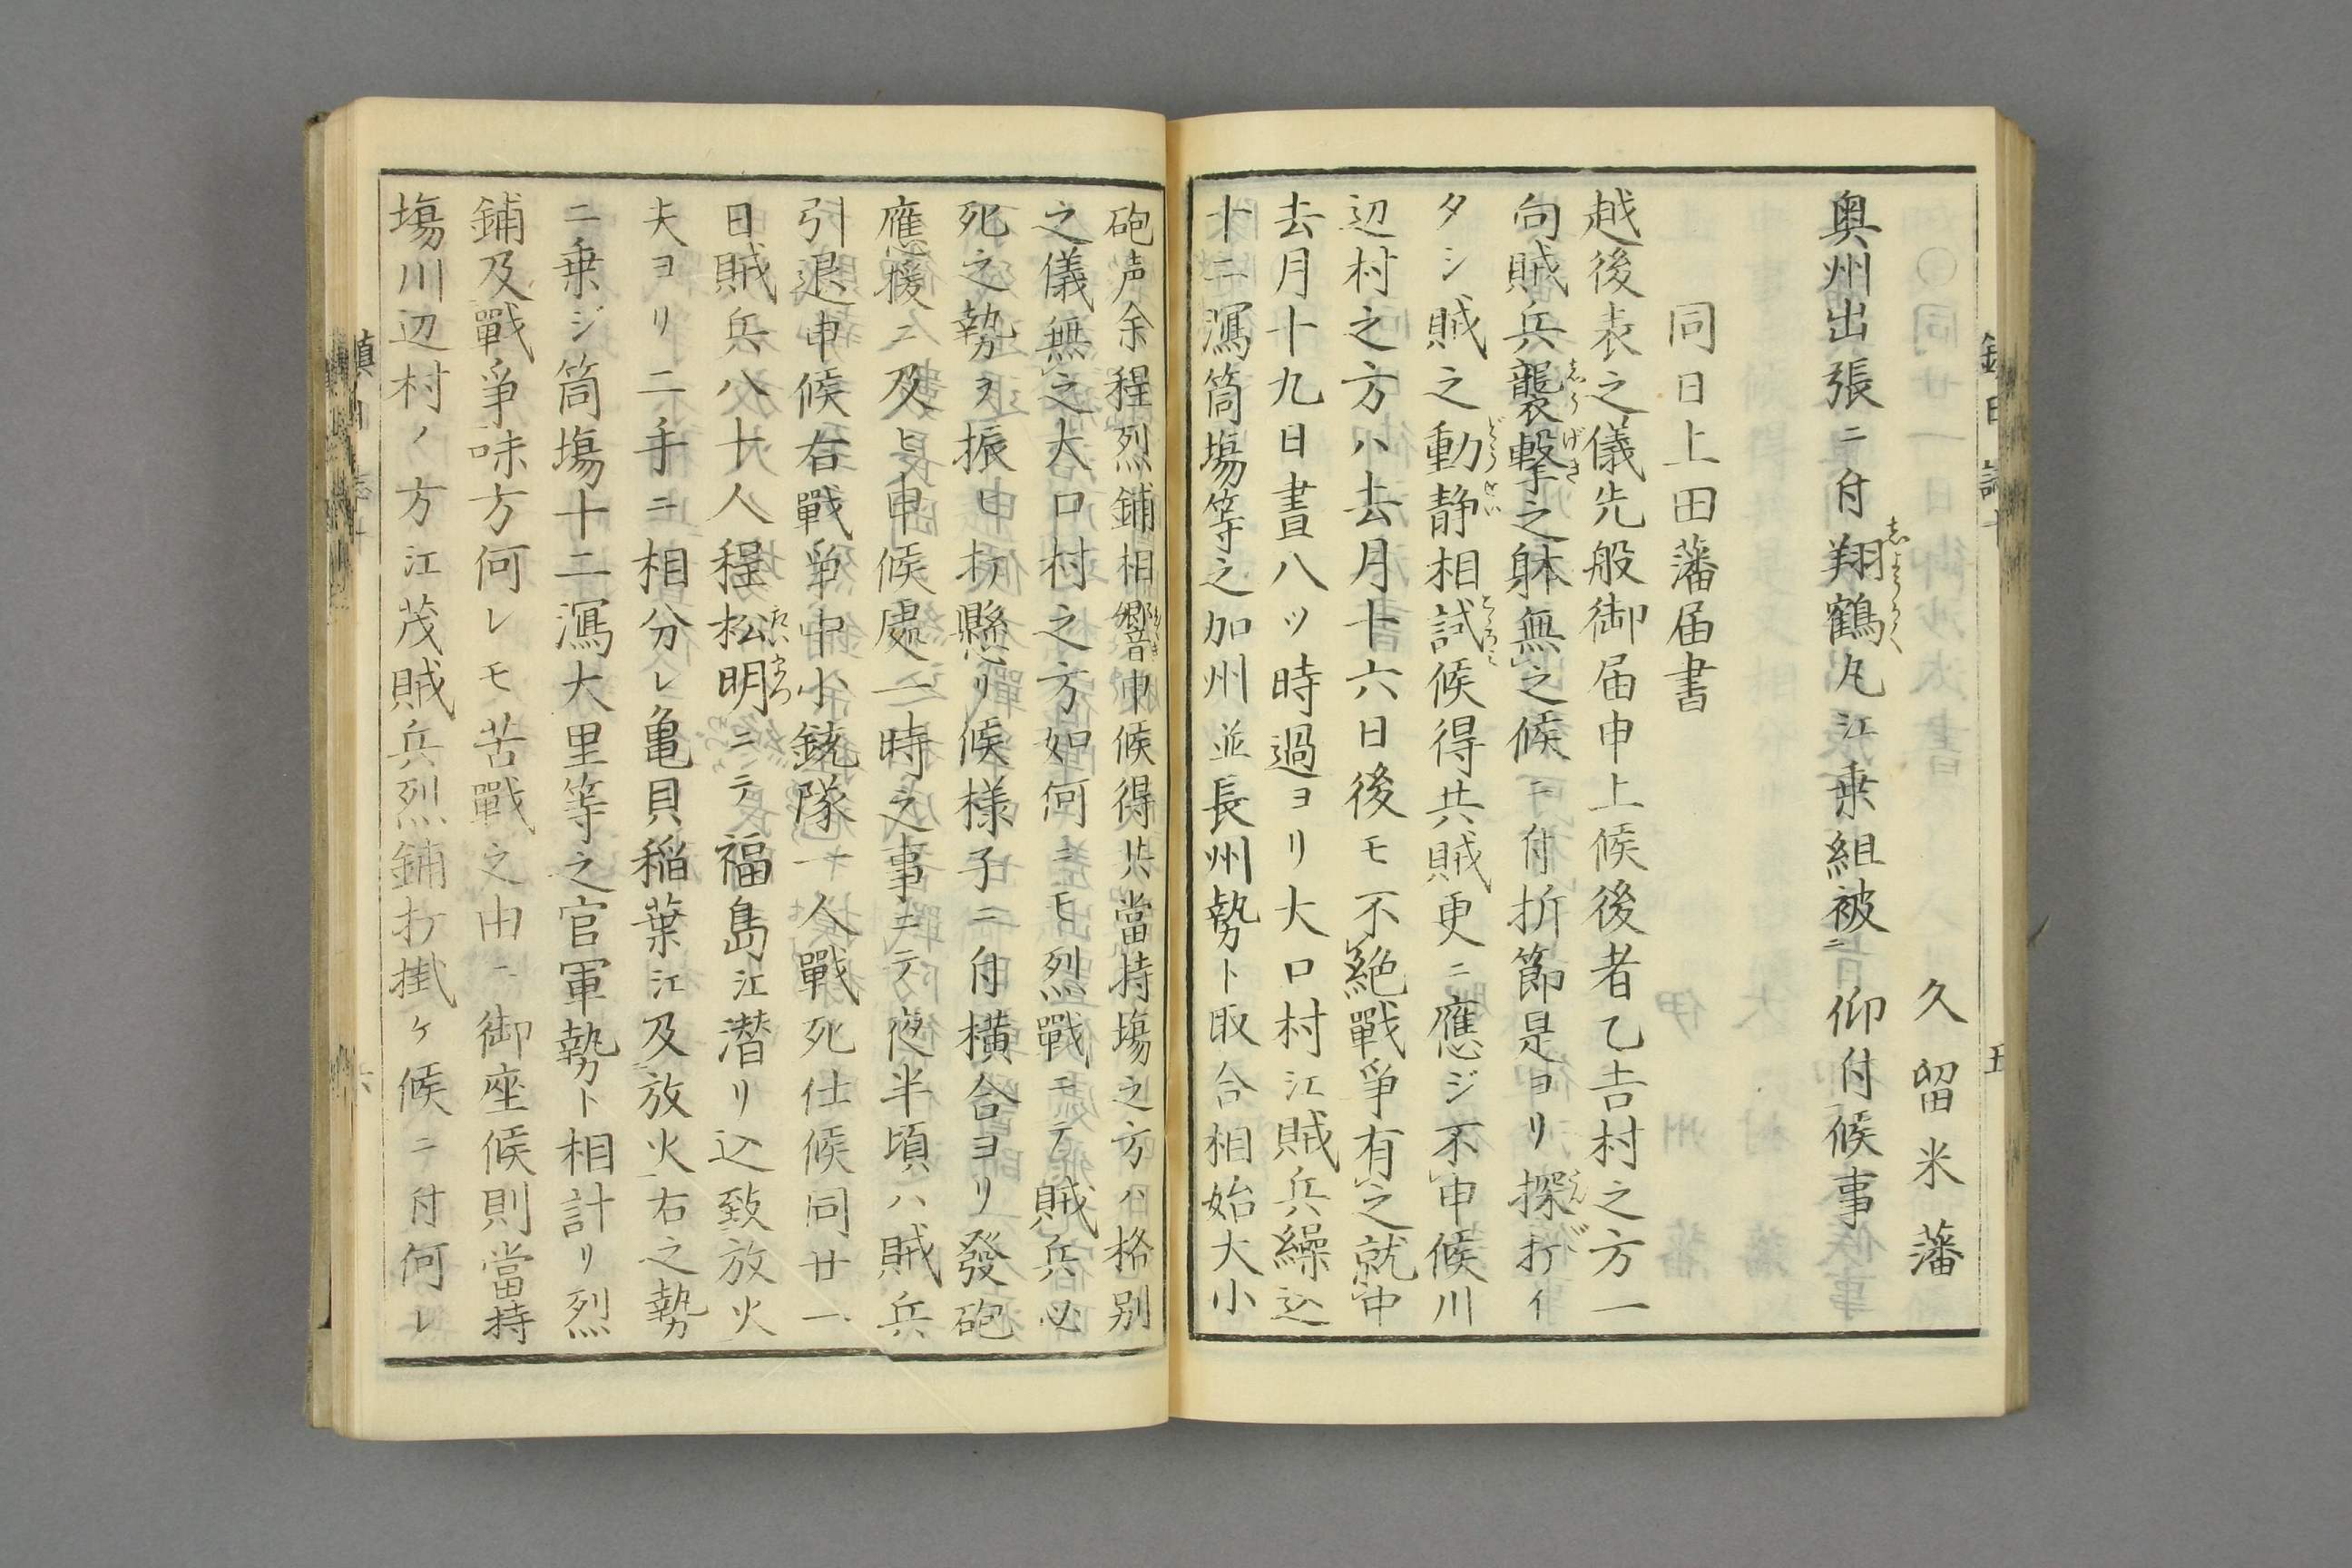 久留米藩
奥州出張ニ付翔鶴丸江乗組被ニ仰付候事
同日上田藩届書
越後表之儀先般御届申上候後者乙吉村之方一
向賊兵襲撃之躰無之候ニ付折節是ヨリ探打イ
タシ賊之動静相試候得共賊更ニ應ジ不申候川
辺村之方ハ去月十六日後モ不絶戰爭有之就中
去月十九日晝八ツ時過ヨリ大口村江賊兵繰込
十二潟筒塲等之加州並長州勢ト取合相始大小
砲声余程烈鋪相響申候得共當持塲之方ハ格別
之儀無之大口村之方如何ニモ烈戰ニテ賊兵必
死之勢ヲ振ヒ打懸リ候様子ニ付横合ヨリ發砲
應援ニ及ヒ申候處一時之事ニテ夜半頃ハ賊兵
引退申候右戰爭中小銃隊一人戰死仕候同廿一
日賊兵八十人程松明ニテ福島江潜リ込致放火
夫ヨリ二手ニ相分レ亀貝稲葉江及放火右之勢
ニ乗ジ筒塲十二潟大里等之官軍勢ト相計リ烈
鋪及戰爭味方何レモ苦戰之由ニ御座候則當持
塲川辺村ノ方江茂賊兵烈鋪打掛ケ候ニ付何レ